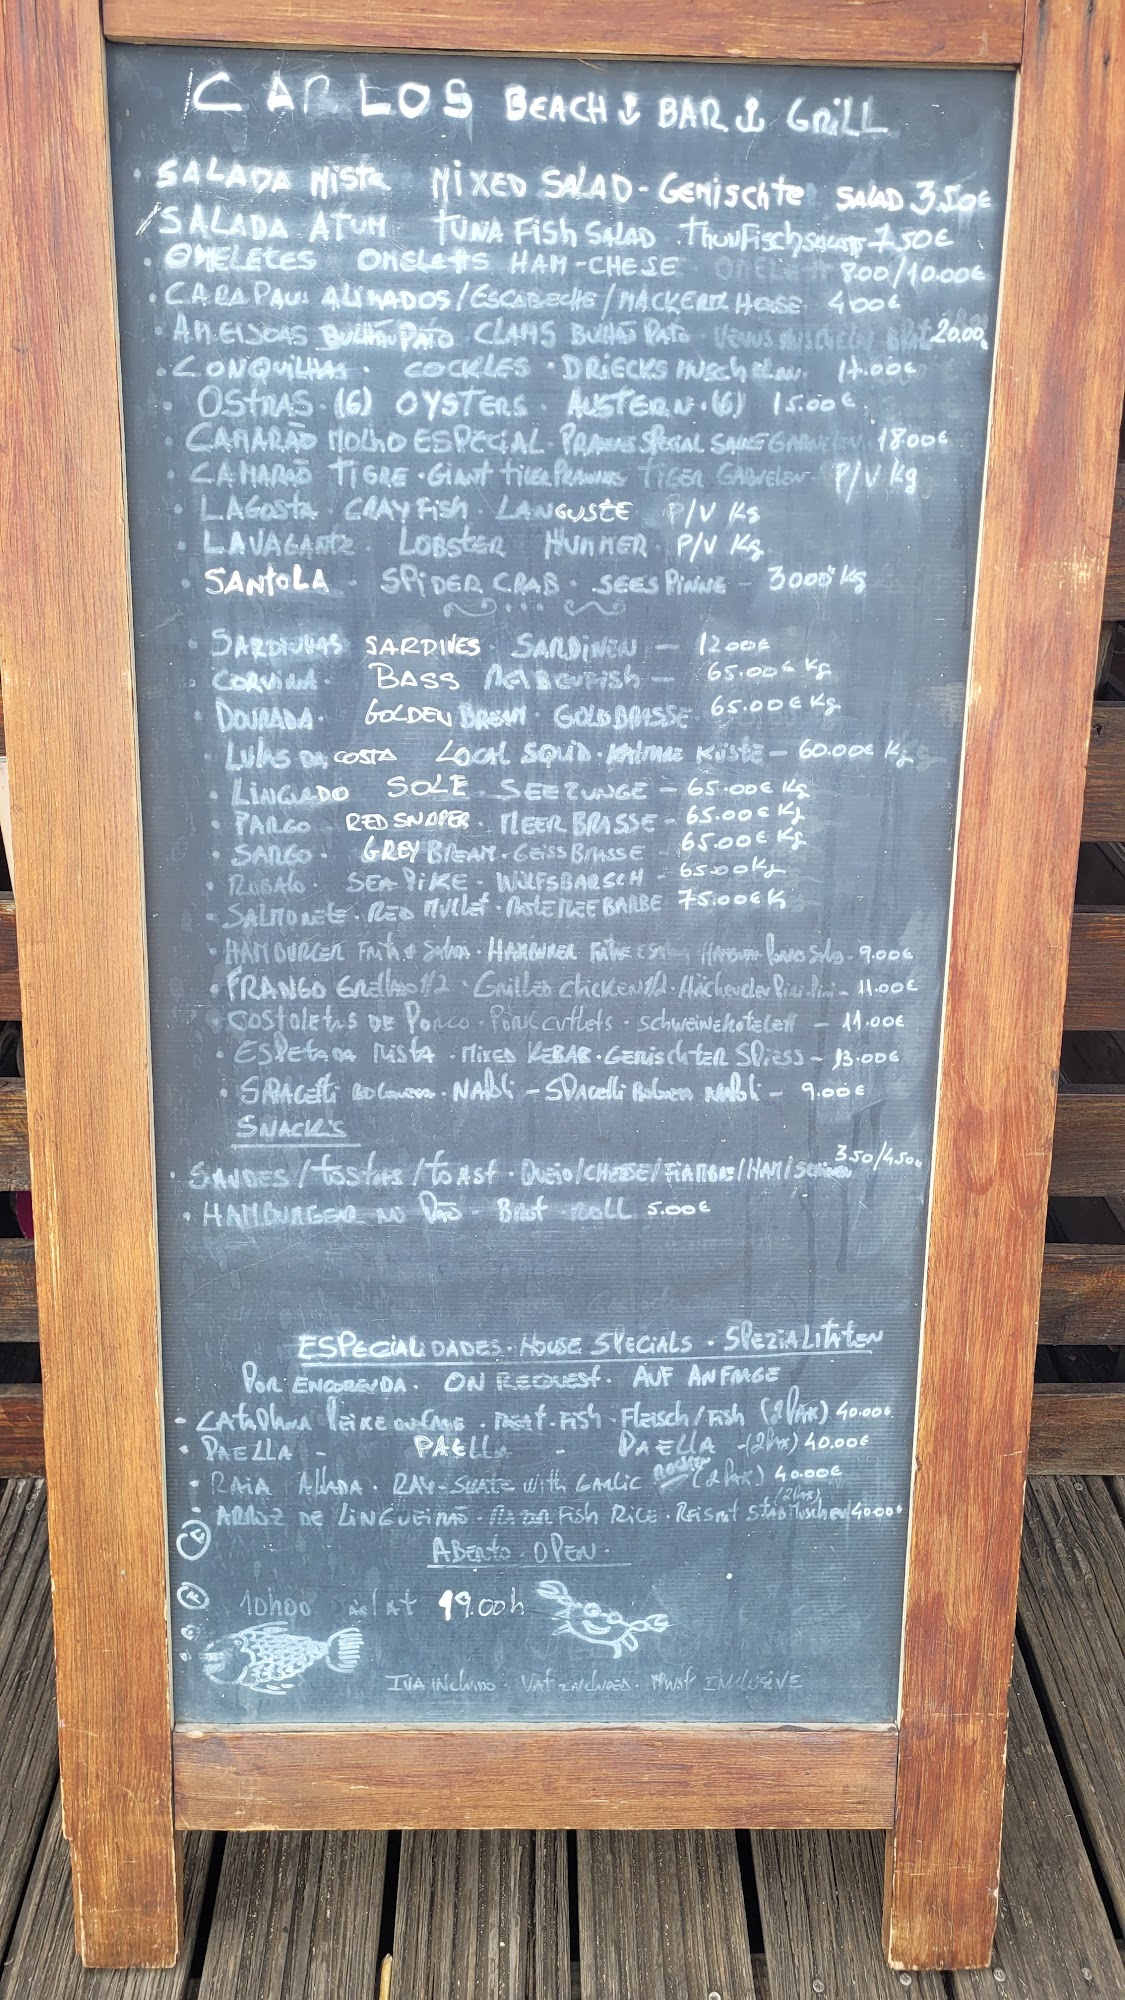 CARLOS BEACH BAR GRILL
SALADA MISTA MIXED SALAD - GEMISCHTE SALAD 3.50€
SALADA ATUM TUNA FISH SALAD . THUNFISCHSALATT 7.50€
OMELETES OMELETTS HAM-CHESE OMELETT 8.00/10.00€
CARAPAUS ALIMADOS/ESCABECHE/MACKEREL HORSE 4.00€
AMEIJOAS BULHÃO PATO CLAMS BULHÃO PATO VENUS 20.00
CONQUILHAS . COCKLES . DRIECKSMUSCHELAN. 17.00€
OSTRAS . (6) OYSTERS . AUSTERN . (6) 15.00€
CAMARÃO MOLHO ESPECIAL . PRAWNS SPECIAL SAUCE GARNELEN 18.00€
CAMARÃO TIGRE . GIANT TIGER PRAWNS TIGER GARNELEN - P/V Kg
LAGOSTA . CRAYFISH . LANGUSTE P/V Kg
LAVAGANTE . LOBSTER HUMMER . P/V Kg
SANTOLA . SPIDER CRAB . SEESPINNE - 30.00€ Kg
SARDINHAS SARDINES . SARDINEN - 12.00€
CORVINA . BASS - 65.00€ Kg
DOURADA . GOLDEN BREAM . GOLDBRASSE 65.00€ Kg
LULAS DA COSTA LOCAL SQUID . KÜSTE - 60.00€ Kg
LINGUADO SOLE . SEEZUNGE - 65.00€ Kg
PARGO RED SNAPER . MEERBRASSE - 65.00€ Kg
SARGO . GREY BREAM . GEISSBRASSE 65.00€ Kg
ROBALO . SEA PIKE . WOLFSBARSCH - 65.00 Kg
SALMONETE . RED MULLET . ROTEMEEBARBE 75.00€ K
HAMBURGER . 9.00€
FRANGO GRELHADO 1/2 . GRILLED CHICKEN 1/2 . HÄCHENCHEN PIRI-PIRI - 11.00€
COSTOLETAS DE PORCO . PORK CUTLETS . SCHWEINEKOTELETT - 11.00€
ESPETADA MISTA . MIXED KEBAB . GEMISCHTER SPIESS - 13.00€
SPAGETTI NAPOLI - SPAGETTI NAPOLI - 9.00€
SNACK'S
SANDES/TOSTAS/TOAST . QUEIJO/CHEESE/FIAMBRE/HAM/ 3.50/4.50€
HAMBURGER NO PÃO . BROT ROLL 5.00€
ESPECIALIDADES . HOUSE SPECIALS . SPEZIALITATEN
POR ENCOMENDA . ON REQUEST . AUF ANFRAGE
CATAPLANA PEIXE OU CARNE . MEAT-FISH . FLEISCH/FISH (2 PAX) 40.00€
PAELLA - PAELLA - PAELLA - (2 PAX) 40.00€
RAIA ALHADA . RAY-SKATE WITH GARLIC ROCHEN (2 PAX) 40.00€
ARROZ DE LINGUEIRÃO . RAZOR FISH RICE . REIS MIT (2 PAX) 40.00€
ABERTO . OPEN .
10H00 19.00h
IVA INCLUIDO . VAT INCLUDED . MWST INCLUSIVE